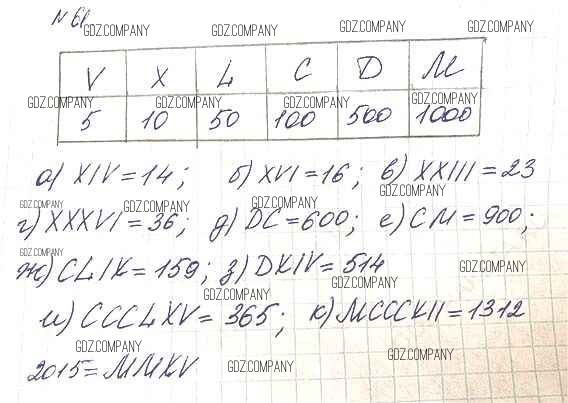 № 61
GDZ.COMPANY GDZ.COMPANY GDZ.COMPANY GDZ.COMPANY
V X L C D M
GDZ.COMPANY GDZ.COMPANY GDZ.COMPANY GDZ.COMPANY
5 10 50 100 500 1000
а) XIV = 14; б) XVI = 16; в) XXIII = 23
GDZ.COMPANY GDZ.COMPANY GDZ.COMPANY
г) XXXVI = 36; д) DC = 600; е) CM = 900;
GDZ.COMPANY GDZ.COMPANY
ж) CLIX = 159; з) DXIV = 514
GDZ.COMPANY GDZ.COMPANY
и) CCCLXV = 365; к) MCCCXII = 1312
GDZ.COMPANY GDZ.COMPANY
2015 = MMXV
GDZ.COMPANY